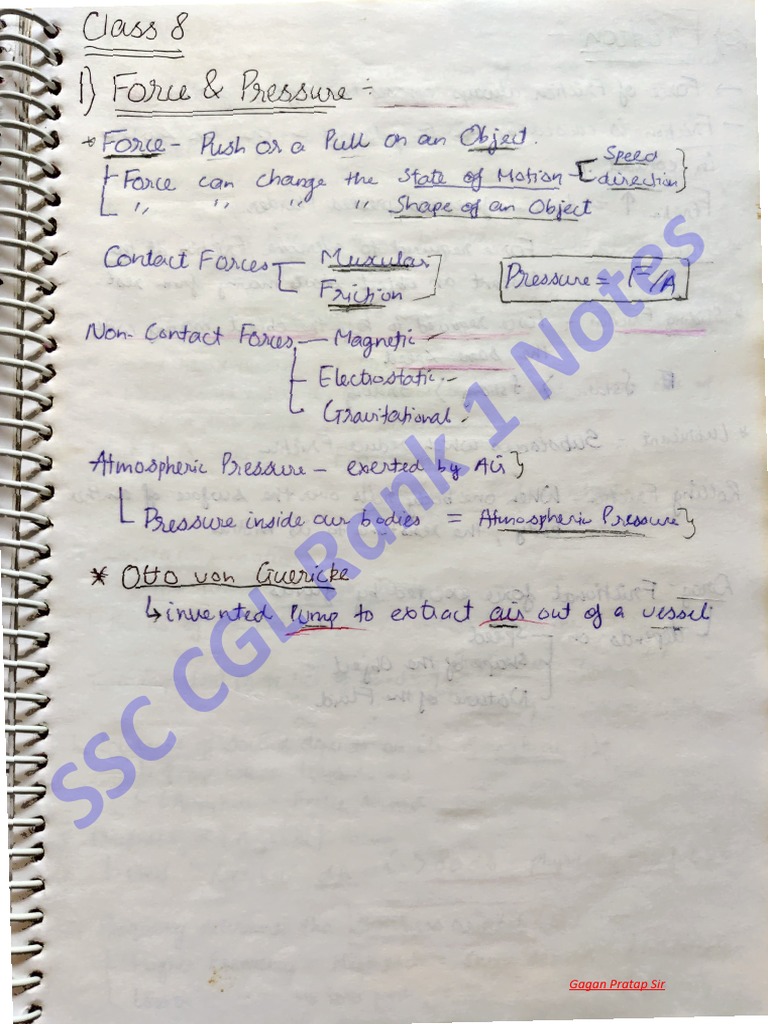 Class 8
1) Force & Pressure :-
* Force - Push or a Pull on an Object.
Force can change the State of Motion - Speed
direction
" " " " Shape of an Object
Contact Forces - Muscular
Friction
Pressure = F/A
Non-Contact Forces - Magnetic
Electrostatic
Gravitational
Atmospheric Pressure - exerted by Air
Pressure inside our bodies = Atmospheric Pressure
* Otto von Guericke
↳ invented Pump to extract air out of a vessel
SSC CGL Rank 1 Notes
Gagan Pratap Sir